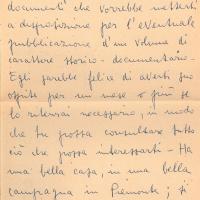 documenti che vorrebbe metterti
a disposizione per l'eventuale
pubblicazione d'un volume di
carattere storico - documentario -
Egli sarebbe felice di averti suo
ospite per un mese o più se
lo riterrai necessario, in modo
che tu possa consultare tutto
ciò che possa interessarti - Ha
una bella casa, in una bella
campagna in Piemonte; ti